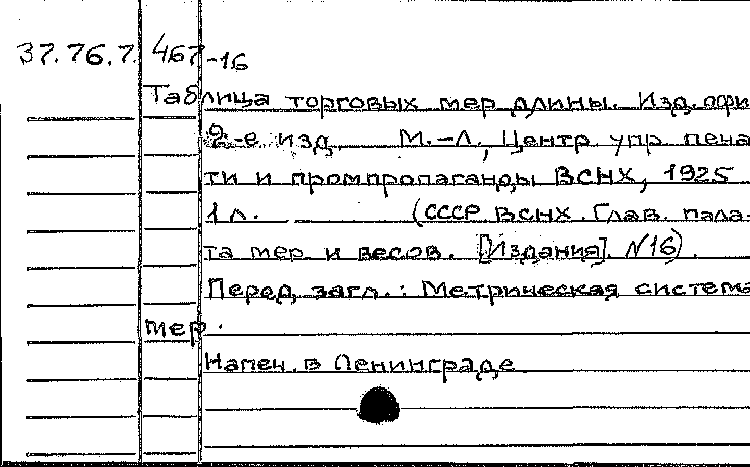 37.76.7. 467-16
Таблица торговых мер длины. Изд. офи
2-е изд. М.-Л., Центр упр печа
ти и промпропаганды ВСНХ, 1925
1 л. (СССР. ВСНХ. Глав. пала-
та мер и весов. [Издания]. №16).
Перед загл.: Метрическая система
мер.
Напеч. в Ленинграде